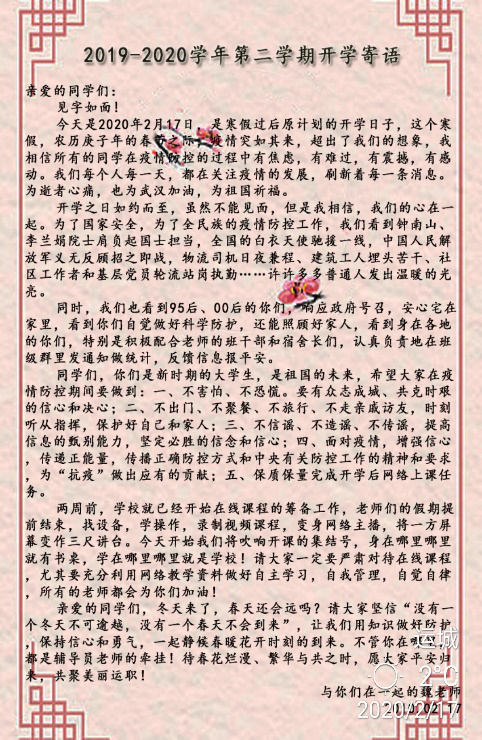 2019-2020学年第二学期开学寄语
亲爱的同学们：
见字如面！
今天是2020年2月17日，是寒假过后原计划的开学日子，这个寒
假，农历庚子年的春节之际，疫情突如其来，超出了我们的想象，我
相信所有的同学在疫情防控的过程中有焦虑，有难过，有震撼，有感
动。我们每个人每一天，都在关注疫情的发展，刷新着每一条消息。
为逝者心痛，也为武汉加油，为祖国祈福。
开学之日如约而至，虽然不能见面，但是我相信，我们的心在一
起。为了国家安全，为了全民族的疫情防控工作，我们看到钟南山、
李兰娟院士肩负起国士担当，全国的白衣天使驰援一线，中国人民解
放军义无反顾招之即战，物流司机日夜兼程、建筑工人埋头苦干、社
区工作者和基层党员轮流站岗执勤……许许多多普通人发出温暖的光
亮。
同时，我们也看到95后、00后的你们，响应政府号召，安心宅在
家里，看到你们自觉做好科学防护，还能照顾好家人，看到身在各地
的你们，特别是积极配合老师的班干部和宿舍长们，认真负责地在班
级群里发通知做统计，反馈信息报平安。
同学们，你们是新时期的大学生，是祖国的未来，希望大家在疫
情防控期间要做到：一、不害怕、不恐慌。要有众志成城、共克时艰
的信心和决心；二、不出门、不聚餐、不旅行、不走亲戚访友，时刻
听从指挥，保护好自己和家人；三、不信谣、不造谣、不传谣，提高
信息的甄别能力，坚定必胜的信念和信心；四、面对疫情，增强信心
，传递正能量，传播正确防控方式和中央有关防控工作的精神和要求
，为“抗疫”做出应有的贡献；五、保质保量完成开学后网络上课任
务。
两周前，学校就已经开始在线课程的筹备工作，老师们的假期提
前结束，找设备，学操作，录制视频课程，变身网络主播，将一方屏
幕变作三尺讲台。今天开始我们将吹响开课的集结号，身在哪里哪里
就有书桌，学在哪里哪里就是学校！请大家一定要严肃对待在线课程
，尤其要充分利用网络教学资料做好自主学习，自我管理，自觉自律
，所有的老师都会为你们加油！
亲爱的同学们，冬天来了，春天还会远吗？请大家坚信“没有一
个冬天不可逾越，没有一个春天不会到来”，让我们用知识做好防护
，保持信心和勇气，一起静候春暖花开时刻的到来。不管你在哪
都是辅导员老师的牵挂！待春花烂漫、繁华与共之时，愿大家平安归
来，共聚美丽运职！
与你们在一起的魏老师
运城
2°C
2020/2/17